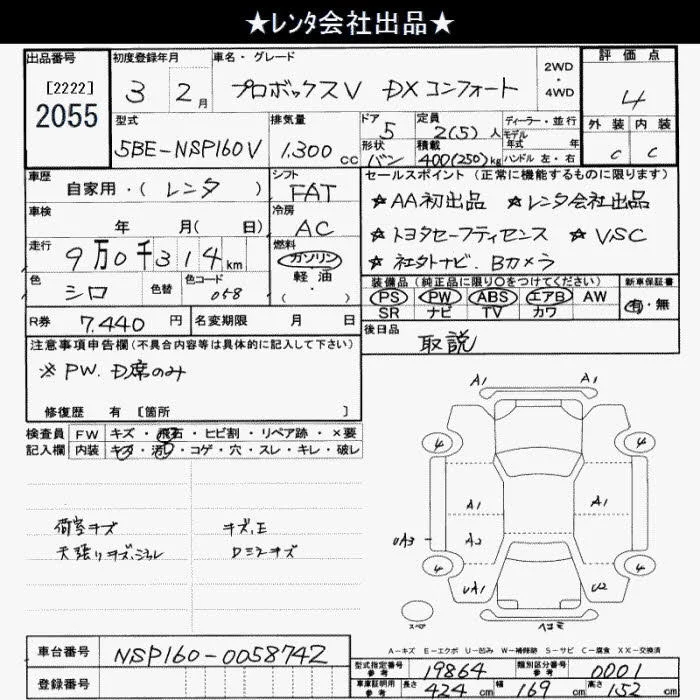 ★レンタ会社出品★
出品番号 初度登録年月 車名・グレード 2WD・4WD 評価点
[2222] 3 2月 プロボックスV DXコンフォート 4
2055 型式 排気量 ドア 定員 ディーラー・並行 外装 内装
5 2(5)人 モデル年式 年
5BE-NSP160V 1,300cc 形状 積載 C C
バン 400(250)kg ハンドル 左・右
車歴 シフト セールスポイント(正常に機能するものに限ります)
自家用・(レンタ) FAT ★AA初出品 ★レンタ会社出品
車検 冷房
年 月(日) AC ★トヨタセーフティセンス ★VSC
走行 燃料
9万0千314km ガソリン ★社外ナビ.Bカメラ
色 色替 色コード 軽油・ 装備品(純正品に限り○をつけてください) 新車保証書
シロ 058 ( ) PS PW ABS エアB AW 有・無
SR ナビ TV カワ
R券 7,440円 名変期限 月 日 後日品
注意事項申告欄(不具合内容等は具体的に記入して下さい) 取説
※PW.D席のみ
修復歴 有 [箇所 ]
検査員 FW キズ・飛石・ヒビ割・リペア跡・×要
記入欄 内装 キズ・汚レ・コゲ・穴・スレ・キレ・破レ
A1 A1
4 4
A1 A1
荷室キズ キズ,エ
UA3 A2
天張りキズ.シュレ Dミラーキズ
4 4
UA1 U2
スペア ヘコミ
A-キズ E-エクボ U-凹み W-補修跡 S-サビ C-腐食 XX-交換済
車台番号 NSP160-0058742
型式指定番号 参考 19864 類別区分番号 参考 0001
登録番号 車庫証明用 参考 長さ 424cm 幅 169cm 高さ 152cm